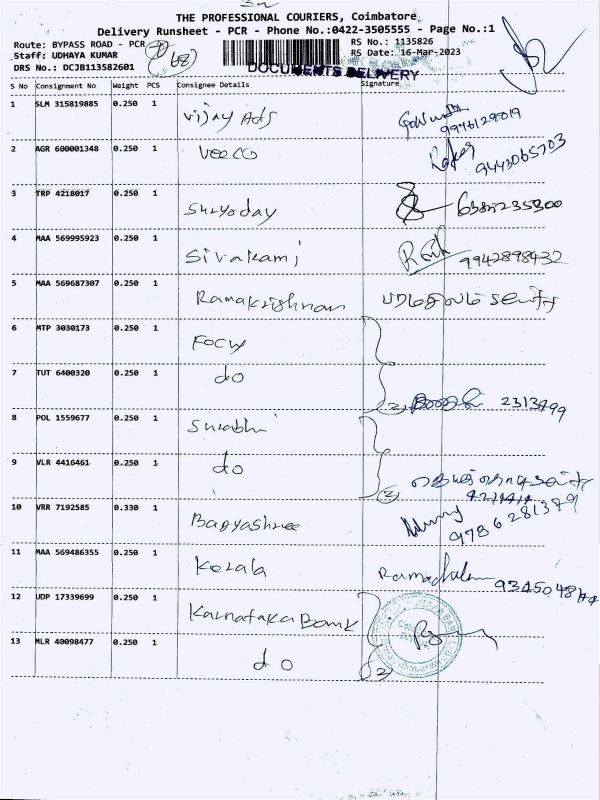 THE PROFESSIONAL COURIERS, Coimbatore
Delivery Runsheet - PCR - Phone No.:0422-3505555 - Page No.:1
Route: BYPASS ROAD - PCR RS No.: 1135826
Staff: UDHAYA KUMAR (68) RS Date: 16-Mar-2023
DRS No.: DCJB113582601 DOCUMENTS DELIVERY
S No Consignment No Weight PCS Consignee Details Signature
1 SLM 315819885 0.250 1 Vijay Ads
2 AGR 600001348 0.250 1 Veeco 9443065703
3 TRP 4218017 0.250 1 Suryoday
4 MAA 569995923 0.250 1 Sivakami 9942898432
5 MAA 569687307 0.250 1 Ramakrishnan
6 MTP 3030173 0.250 1 Focus
7 TUT 6400320 0.250 1 do (2) 2313499
8 POL 1559677 0.250 1 Surabhi
9 VLR 4416461 0.250 1 do (2)
10 VRR 7192585 0.330 1 Bagyashree 9786281379
11 MAA 569486355 0.250 1 Kerala
12 UDP 17339699 0.250 1 Karnataka Bank
13 MLR 40098477 0.250 1 do (2)